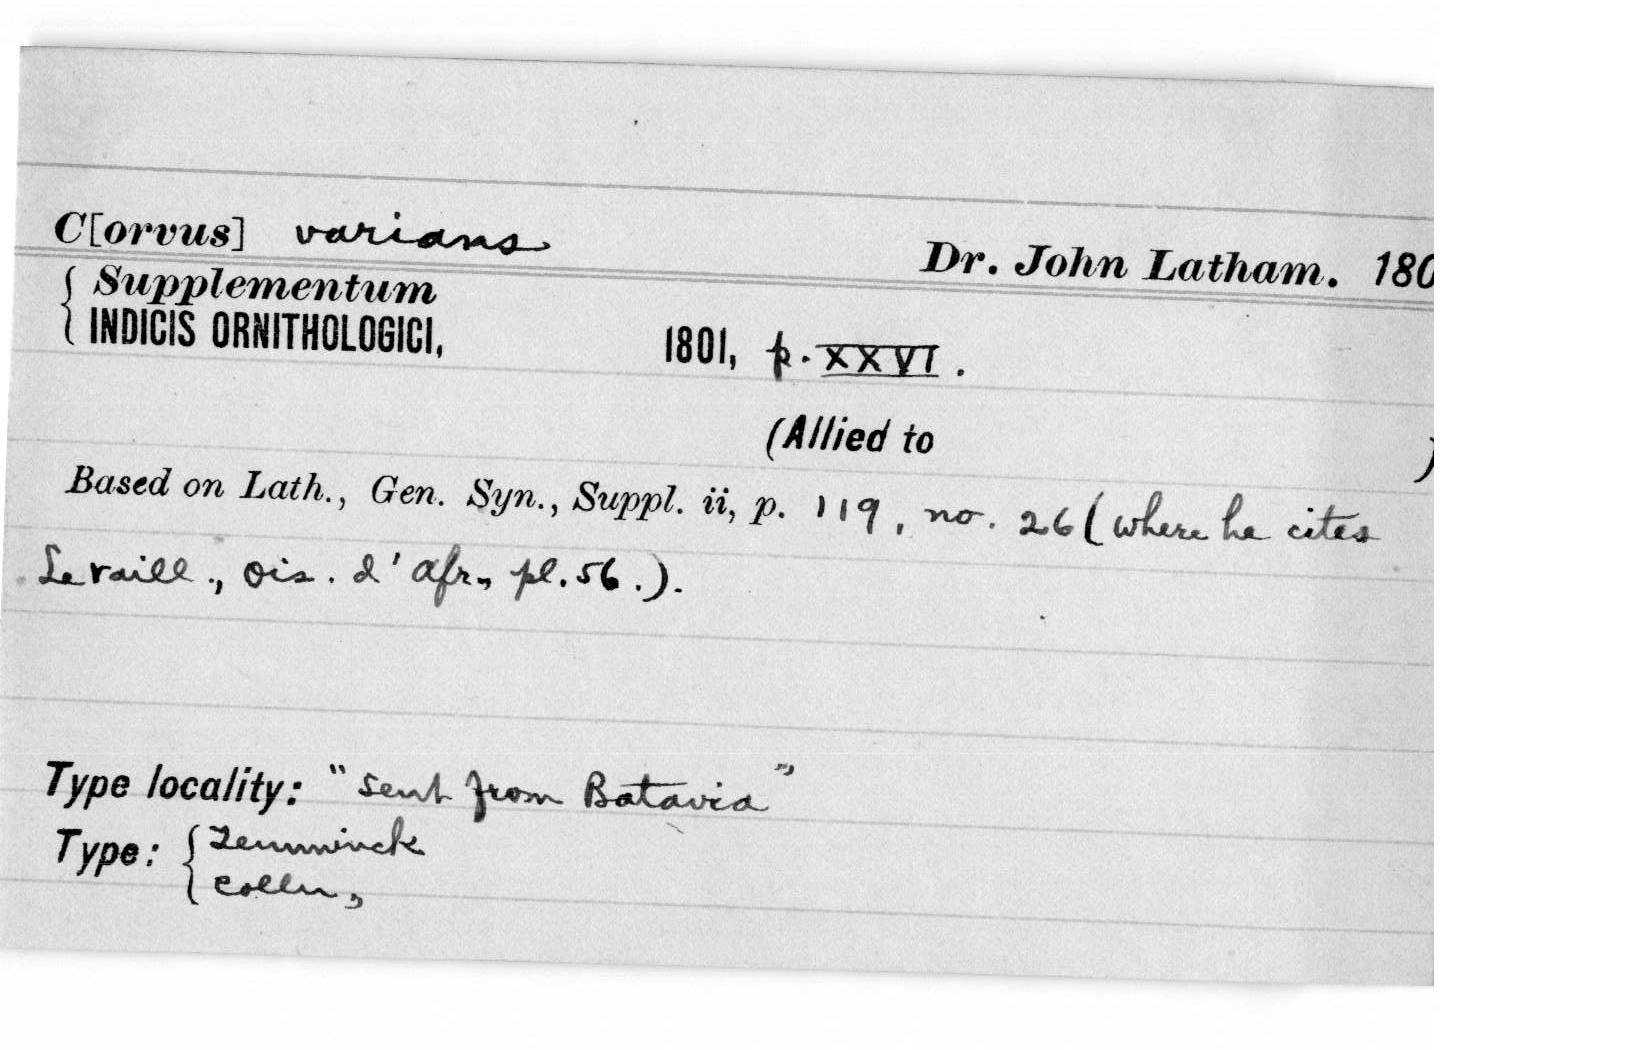 C[orvus] varians
Dr. John Latham. 180
Supplementum
INDICIS ORNITHOLOGICI, 1801, p. XXVI.
(Allied to )
Based on Lath., Gen. Syn., Suppl. ii, p. 119, no. 26 (where he cites
Levaill., Ois. d'Afr., pl. 56.).
Type locality: "sent from Batavia"
Type: Temminck
Colln,